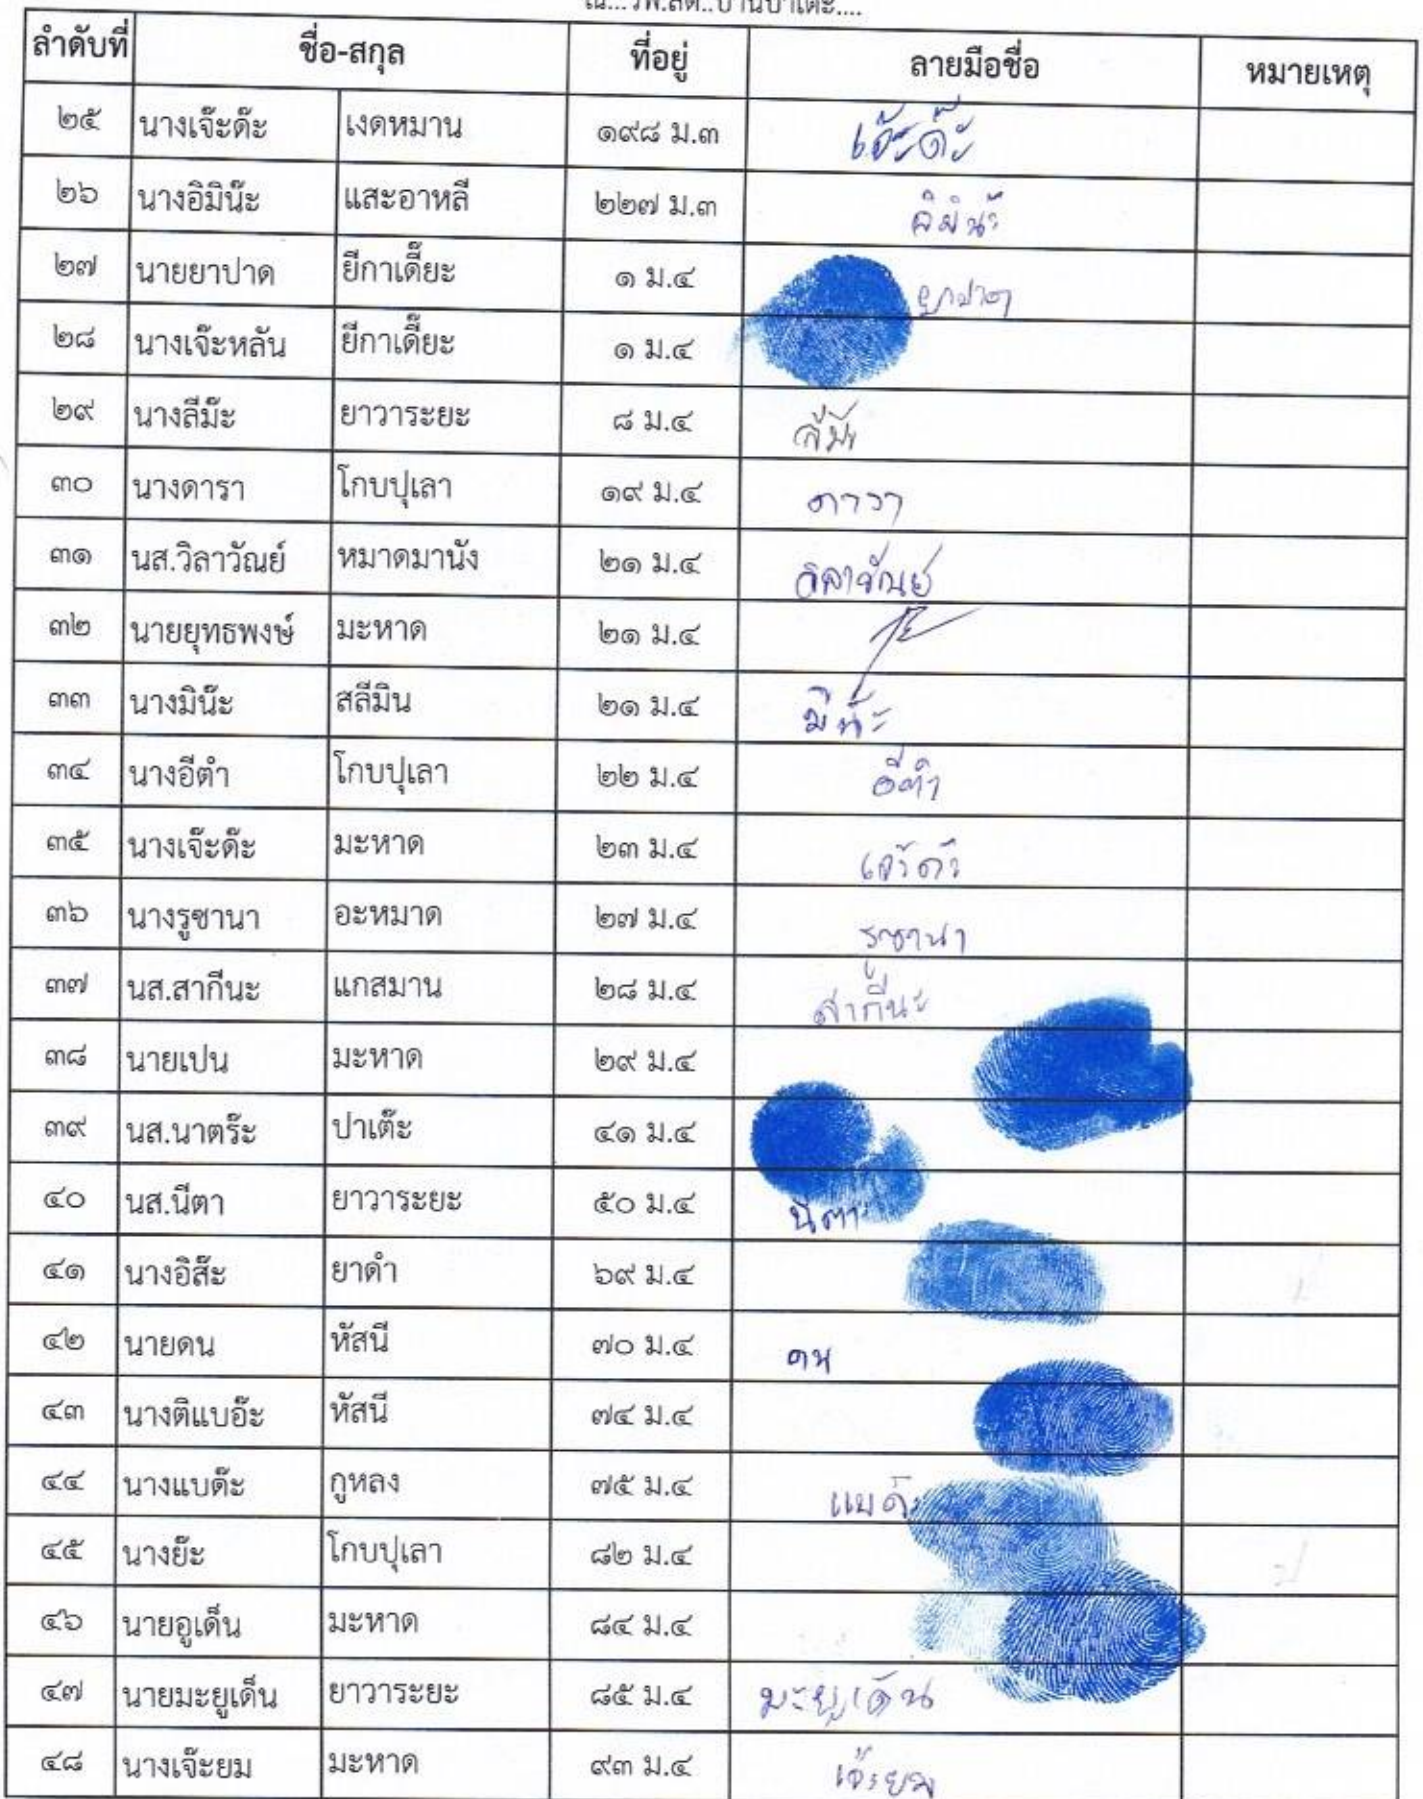 ณ...รพ.สต..บ้านปาเต๊ะ....
ลำดับที่ ชื่อ-สกุล ที่อยู่ ลายมือชื่อ หมายเหตุ
๒๕ นางเจ๊ะด๊ะ เงดหมาน ๑๙๘ ม.๓ เจ๊ะด๊ะ
๒๖ นางอิมิน๊ะ แสะอาหลี ๒๒๗ ม.๓
๒๗ นายยาปาด ยีกาเดี๊ยะ ๑ ม.๔ ยาปาด
๒๘ นางเจ๊ะหลัน ยีกาเดี๊ยะ ๑ ม.๔
๒๙ นางลีม๊ะ ยาวาระยะ ๘ ม.๔
๓๐ นางดารา โกบปุเลา ๑๙ ม.๔ ดารา
๓๑ นส.วิลาวัณย์ หมาดมานัง ๒๑ ม.๔ วิลาวัณย์
๓๒ นายยุทธพงษ์ มะหาด ๒๑ ม.๔
๓๓ นางมิน๊ะ สลีมิน ๒๑ ม.๔ มีน๊ะ
๓๔ นางอีตำ โกบปุเลา ๒๒ ม.๔ อีตำ
๓๕ นางเจ๊ะด๊ะ มะหาด ๒๓ ม.๔
๓๖ นางรูซานา อะหมาด ๒๗ ม.๔ รูซานา
๓๗ นส.สากีนะ แกสมาน ๒๘ ม.๔ สากีนะ
๓๘ นายเปน มะหาด ๒๙ ม.๔
๓๙ นส.นาตร๊ะ ปาเต๊ะ ๔๑ ม.๔
๔๐ นส.นีตา ยาวาระยะ ๕๐ ม.๔ นีตา
๔๑ นางอิส๊ะ ยาดำ ๖๙ ม.๔
๔๒ นายดน หัสนี ๗๐ ม.๔ ดน
๔๓ นางติแบอ๊ะ หัสนี ๗๔ ม.๔
๔๔ นางแบด๊ะ กูหลง ๗๕ ม.๔ แบด๊ะ
๔๕ นางย๊ะ โกบปุเลา ๘๒ ม.๔
๔๖ นายอูเด็น มะหาด ๘๔ ม.๔
๔๗ นายมะยูเด็น ยาวาระยะ ๘๕ ม.๔ มะยูเด็น
๔๘ นางเจ๊ะยม มะหาด ๙๓ ม.๔ เจ๊ะยม